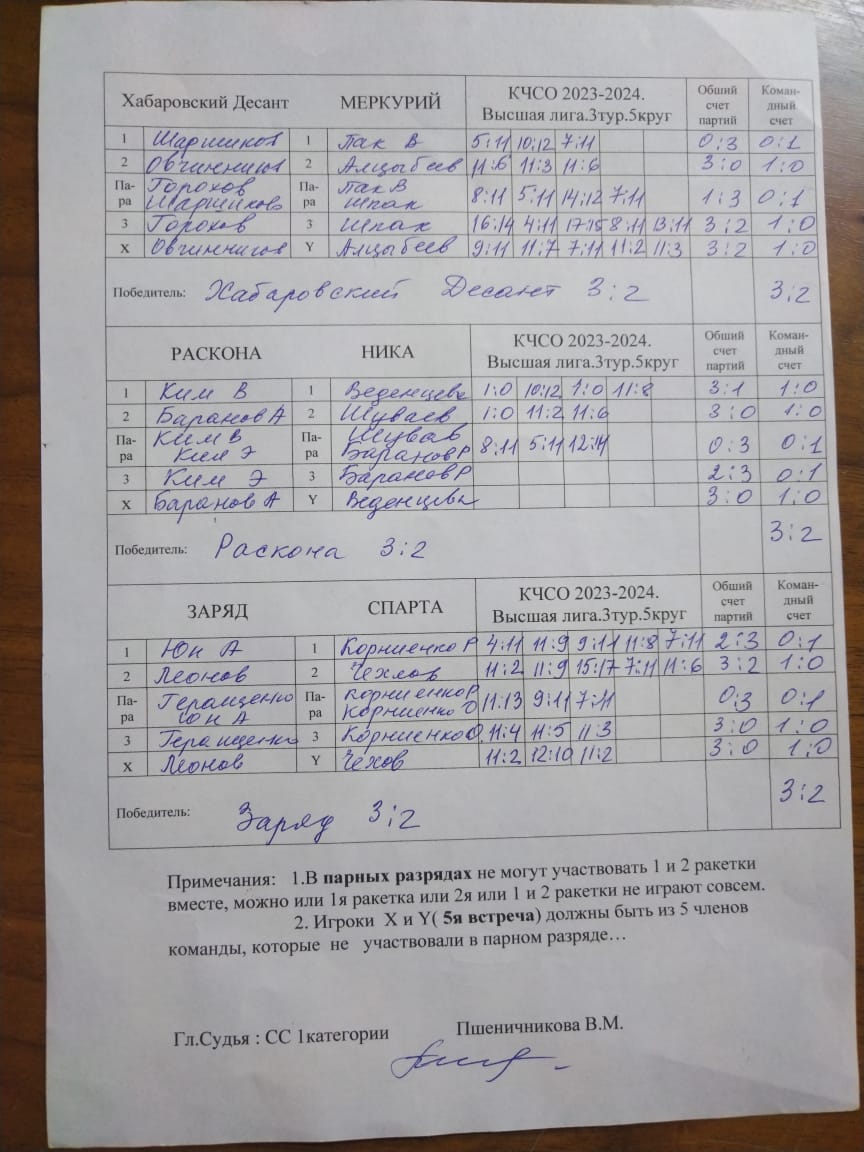 Хабаровский Десант МЕРКУРИЙ КЧСО 2023-2024. Высшая лига.3тур.5круг Общий счет партий Коман-дный счет
1 Шаршиков 1 Пак В 5:11 10:12 7:11 0:3 0:1
2 Овчинников 2 Алцыбеев 11:6 11:3 11:6 3:0 1:0
Па-ра Горохов Шаршиков Па-ра Пак В Шпак 8:11 5:11 14:12 7:11 1:3 0:1
3 Горохов 3 Шпак 16:14 4:11 17:15 8:11 13:11 3:2 1:0
X Овчинников Y Алцыбеев 9:11 11:7 7:11 11:2 11:3 3:2 1:0
Победитель: Хабаровский Десант 3:2 3:2
РАСКОНА НИКА КЧСО 2023-2024. Высшая лига.3тур.5круг Общий счет партий Коман-дный счет
1 Ким В 1 Веденцевы 1:0 10:12 1:0 11:8 3:1 1:0
2 Баранов А 2 Шуваев 1:0 11:2 11:6 3:0 1:0
Па-ра Ким В Ким Э Па-ра Шував Баранов Р 8:11 5:11 12:14 0:3 0:1
3 Ким Э 3 Баранов Р 2:3 0:1
X Баранов А Y Веденцевы 3:0 1:0
Победитель: Раскона 3:2 3:2
ЗАРЯД СПАРТА КЧСО 2023-2024. Высшая лига.3тур.5круг Общий счет партий Коман-дный счет
1 Юн А 1 Корниенко Р 4:11 11:9 9:11 11:8 7:11 2:3 0:1
2 Леонов 2 Чехлов 11:2 11:9 15:17 7:11 11:6 3:2 1:0
Па-ра Геращенко Юн А Па-ра Корниенко Р Корниенко О 11:13 9:11 7:11 0:3 0:1
3 Геращенко 3 Корниенко О 11:4 11:5 11:3 3:0 1:0
X Леонов Y Чехов 11:2 12:10 11:2 3:0 1:0
Победитель: Заряд 3:2 3:2
Примечания: 1.В парных разрядах не могут участвовать 1 и 2 ракетки
вместе, можно или 1я ракетка или 2я или 1 и 2 ракетки не играют совсем.
2. Игроки X и Y( 5я встреча) должны быть из 5 членов
команды, которые не участвовали в парном разряде…
Гл.Судья : СС 1категории Пшеничникова В.М.